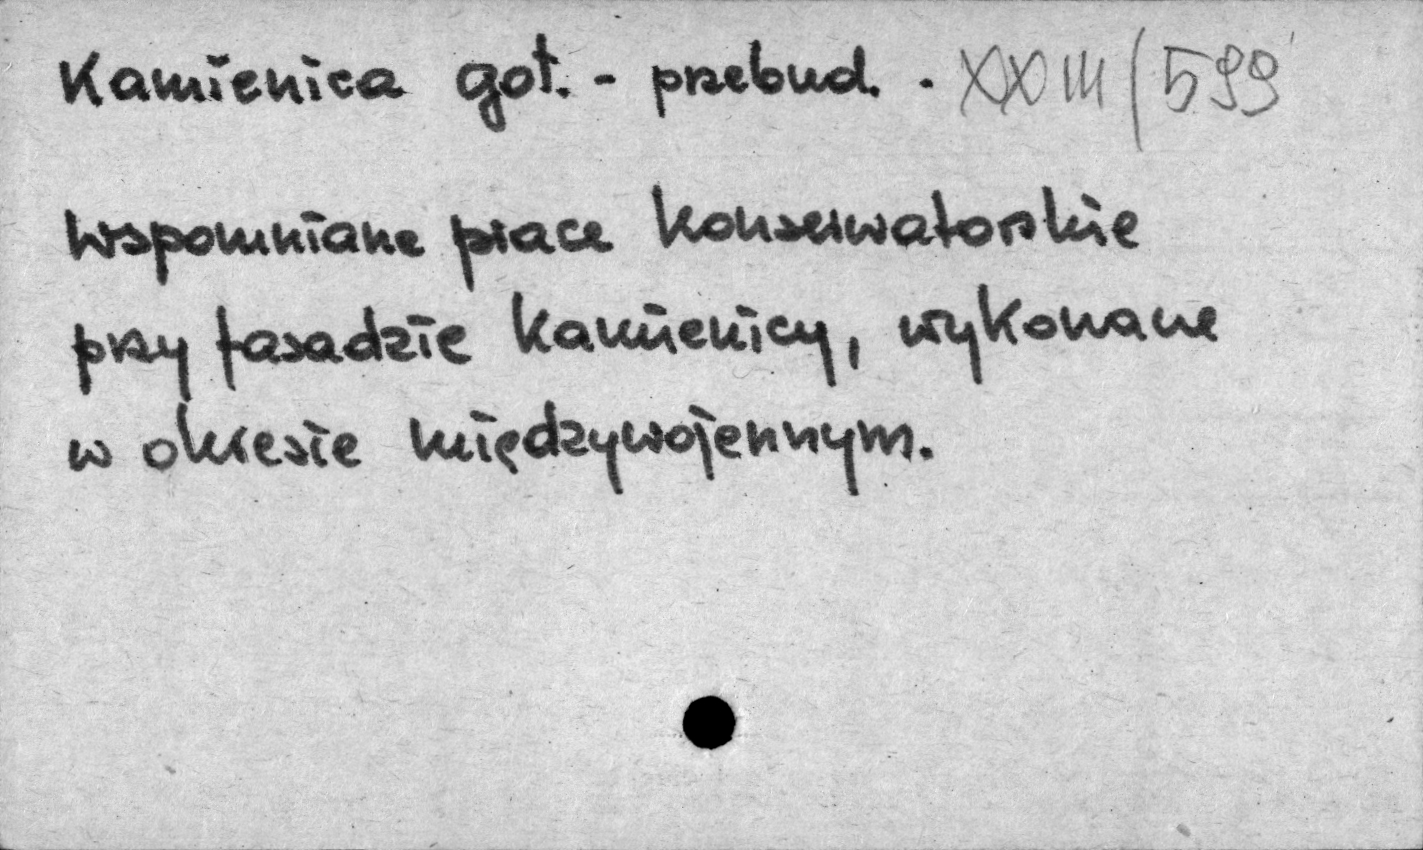 Kamienica got. - przebud. - XXIII/599
Wspomniane prace konserwatorskie
przy fasadzie kamienicy, wykonane
w okresie międzywojennym.